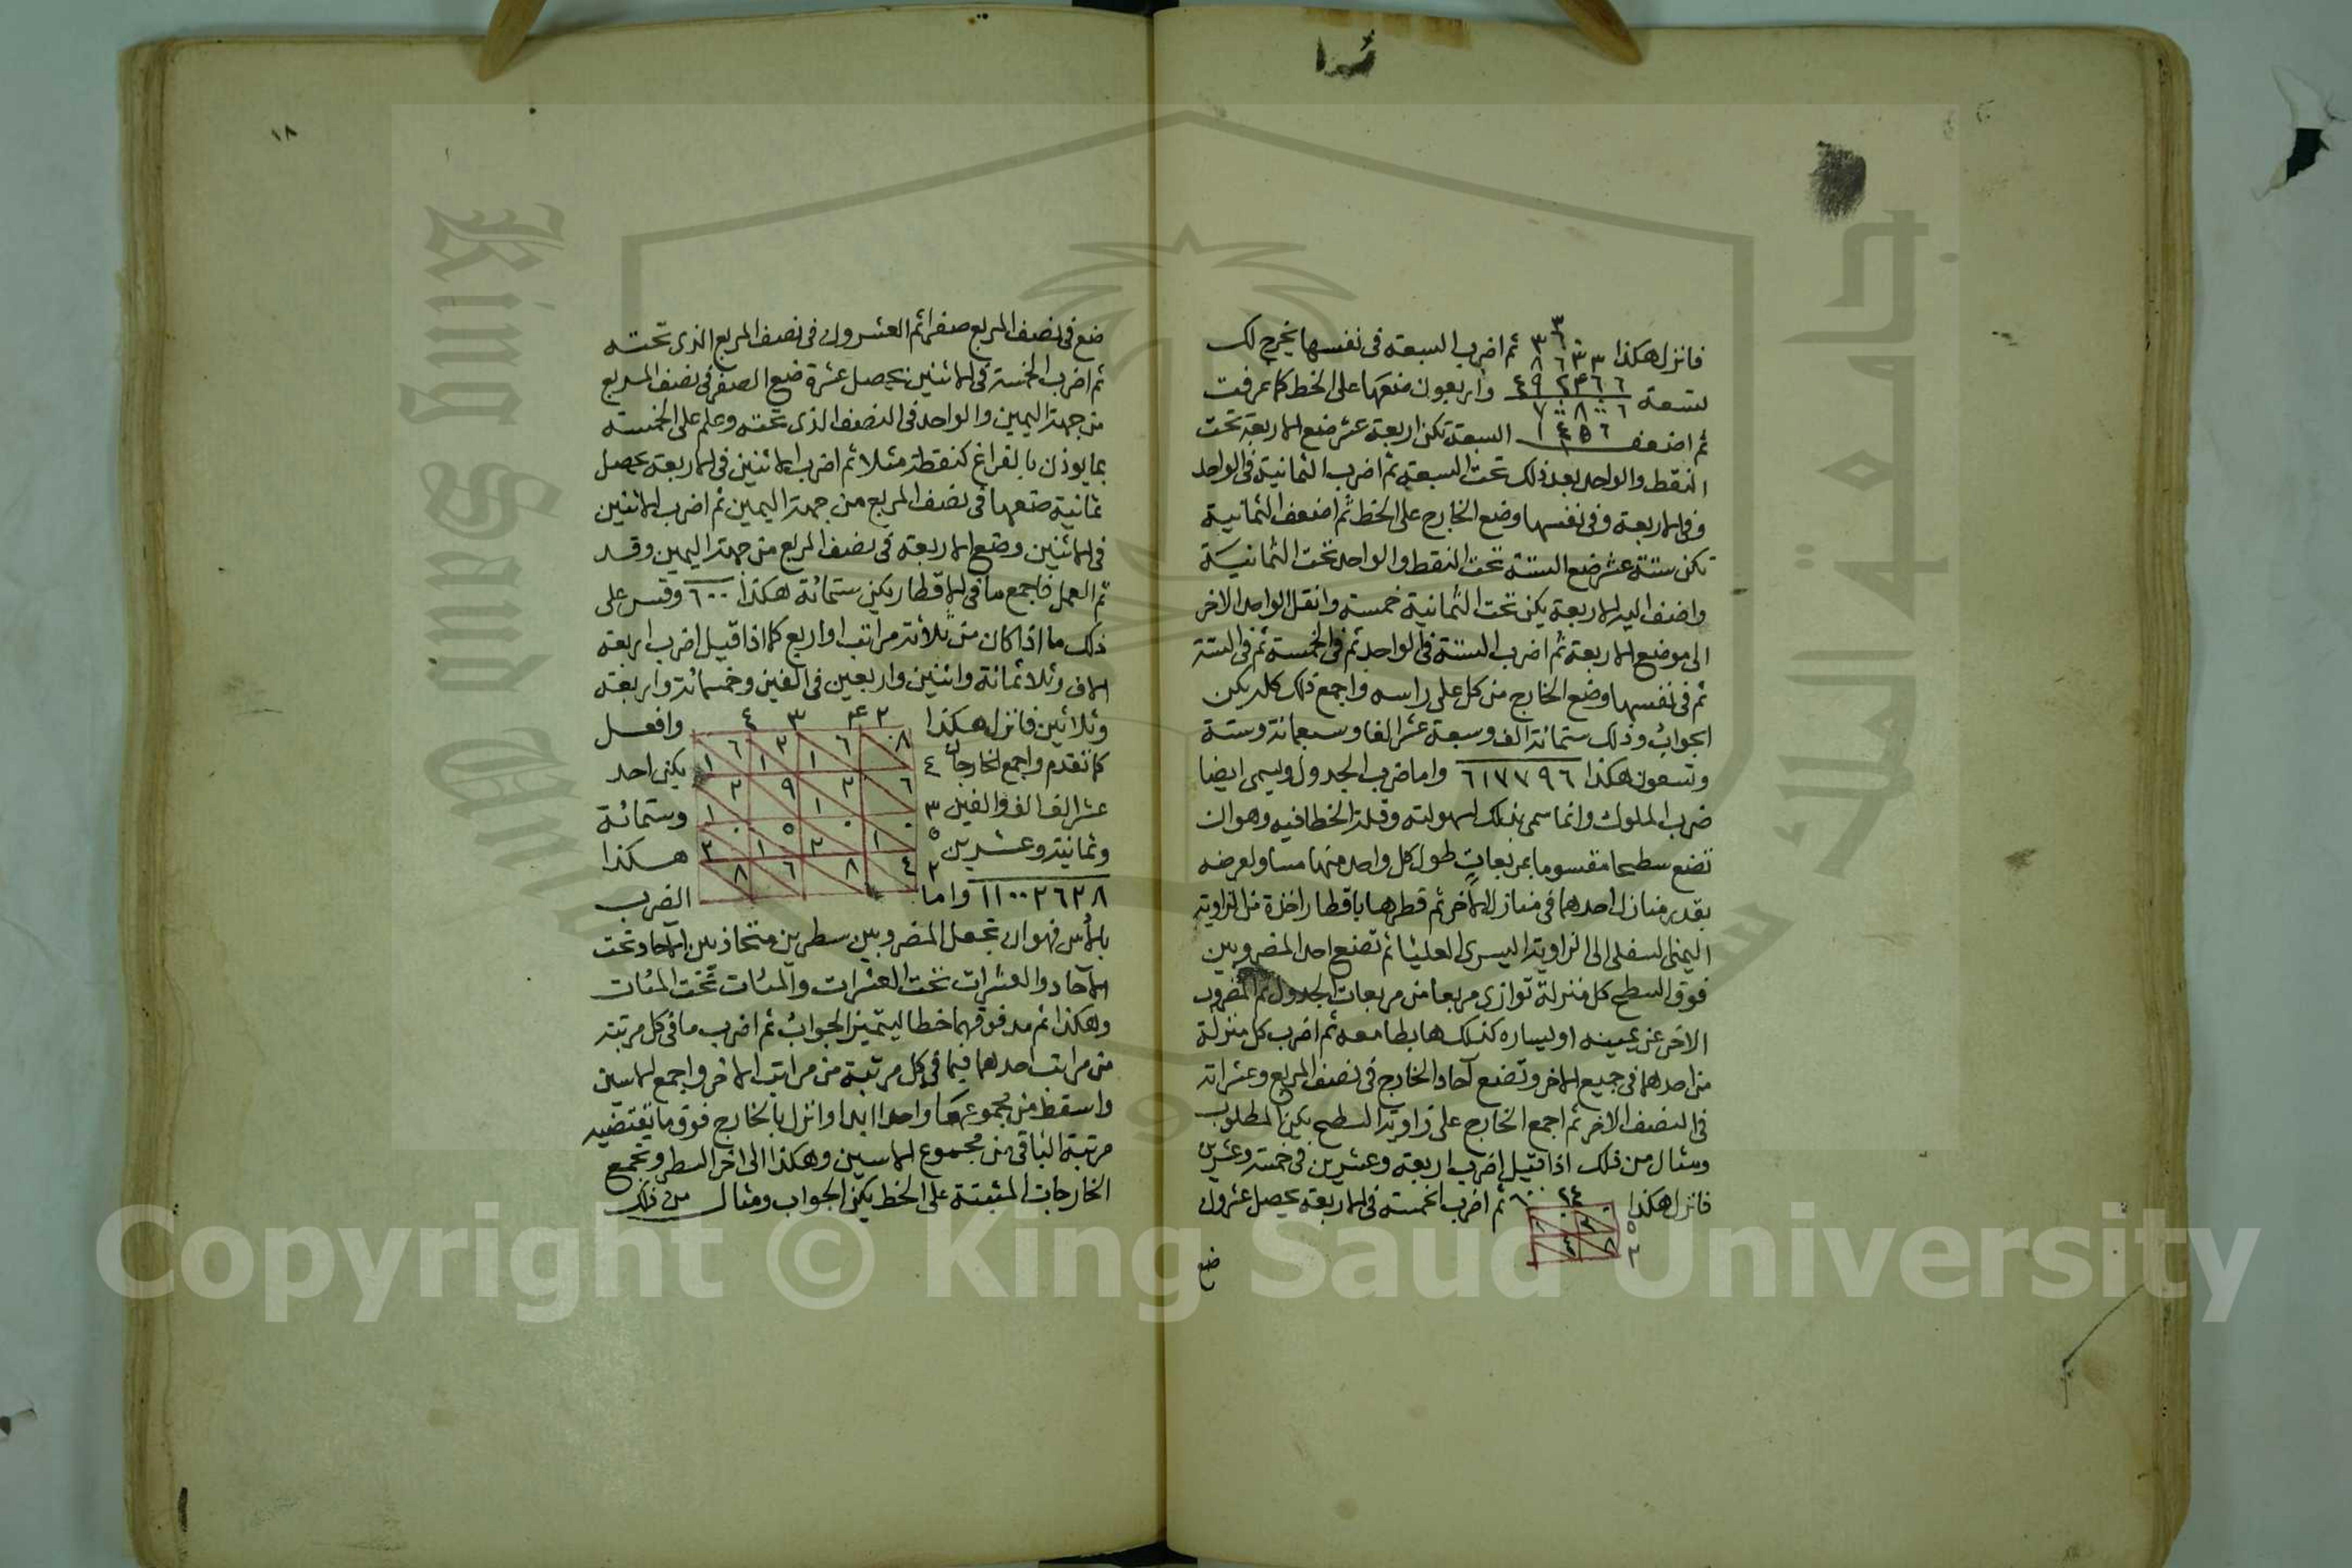 فانزل هكذا ثم اضرب السبعة فى نفسها يخرج لك
تسعة واربعون ضعها على الخط كما عرفت
ثم اضعف السبعة تكن اربعة عشر ضع الاربعة تحت
النقط والواحد بعد ذلك تحت السبعة ثم اضرب الثمانية فى الواحد
وفى الاربعة وفى نفسها وضع الخارج على الخط ثم اضعف الثمانية
تكن ستة عشر ضع الستة تحت النقط والواحد تحت الثمانية
واضف اليه الاربعة يكن تحت الثمانية خمسة وانقل الواحد الاخر
الى موضع الاربعة ثم اضرب الستة فى الواحد ثم فى الخمسة ثم فى الستة
ثم فى نفسها وضع الخارج من كل على راسه واجمع ذلك كله يكن
الجواب وذلك ستمائة الف وسبعة عشر الفا وسبعمائة وستة
وتسعون هكذا ٦١٧٧٩٦ واما ضرب الجدول ويسمى ايضا
ضرب الملوك وانما سمى بذلك لسهولته وقلة الخطا فيه وهو ان
تضع سطحا مقسوما بمربعات طول كل واحد منها مساو لعرضه
بقدر منازل احدهما فى منازل الاخر ثم قطرها باقطار اخذة من الزاوية
اليمنى السفلى الى الزاوية اليسرى العليا ثم تضع احد المضروبين
فوق السطح كل منزلة توازى مربعا من مربعات الجدول ثم المضروب
الاخر عن يمينه او يساره كذلك هابطا معه ثم اضرب كل منزلة
من احدهما فى جميع الاخر وتضع آحاد الخارج فى نصف المربع وعشراته
فى النصف الاخر ثم اجمع الخارج على زاوية السطح يكن المطلوب
ومثال من ذلك اذا قيل اضرب اربعة وعشرين فى خمسة وعشرين
فانزل هكذا ٢٤ ٦٠٠ ثم اضرب الخمسة فى الاربعة يحصل عشرون
ضع
١٨
ضع فى نصف المربع صفرا ثم العشرون فى نصف المربع الذى تحته
ثم اضرب الخمسة فى الاثنين يحصل عشرة ضع الصفر فى نصف المربع
من جهة اليمين والواحد فى النصف الذى تحته وعلم على الخمسة
بما يوذن بالفراغ كنقطة مثلا ثم اضرب الاثنين فى الاربعة يحصل
ثمانية ضعها فى نصف المربع من جهة اليمين ثم اضرب الاثنين
فى الاثنين وضع الاربعة فى نصف المربع من جهة اليمين وقد
تم العمل فاجمع ما فى الاقطار يكن ستمائة هكذا ٦٠٠ وقس على
ذلك ما اذا كان من ثلاثة مراتب او اربع كما اذا قيل اضرب اربعة
الاف وثلاثمائة واثنين واربعين فى الفين وخمسمائة واربعة
وثلاثين فانزل هكذا ٤ ٣ ٤ ٢ وافعل
كما تقدم واجمع الخارجات ٤ يكن احد
عشر الف الف والفين ٣ وستمائة
وثمانية وعشرين ٥ هكذا
١١٠٠٢٦٢٨ واما ٢ الضرب
بالاس فهو ان تجعل المضروبين سطرين متحاذيين الاحاد تحت
الآحاد والعشرات تحت العشرات والمئات تحت المئات
وهكذا ثم مد فوقهما خطا ليتميز الجواب ثم اضرب ما فى كل مرتبة
من مراتب احدهما فيما فى كل مرتبة من مراتب الاخر واجمع الاسين
واسقط من مجموعهما واحدا ابدا وانزل بالخارج فوق ما تقتضيه
مرتبة الباقى من مجموع الاسين وهكذا الى اخر السطر وتجمع
الخارجات المثبتة على الخط يكن الجواب ومثال من ذلك
Copyright © King Saud University